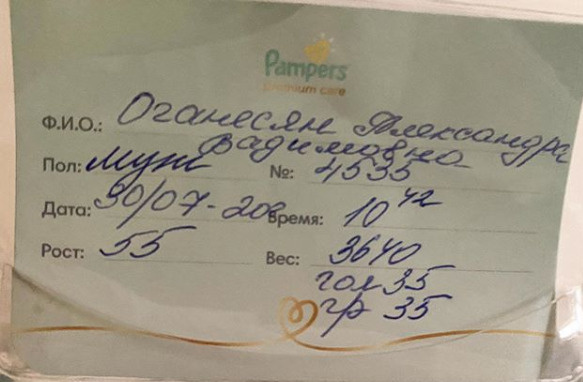 Pampers
premium care
Ф.И.О.: Оганесян Александра
Вадимовна
Пол: муж №: 4535
Дата: 30/07-20 Время: 10 42
Рост: 55 Вес: 3640
гол 35
гр 35